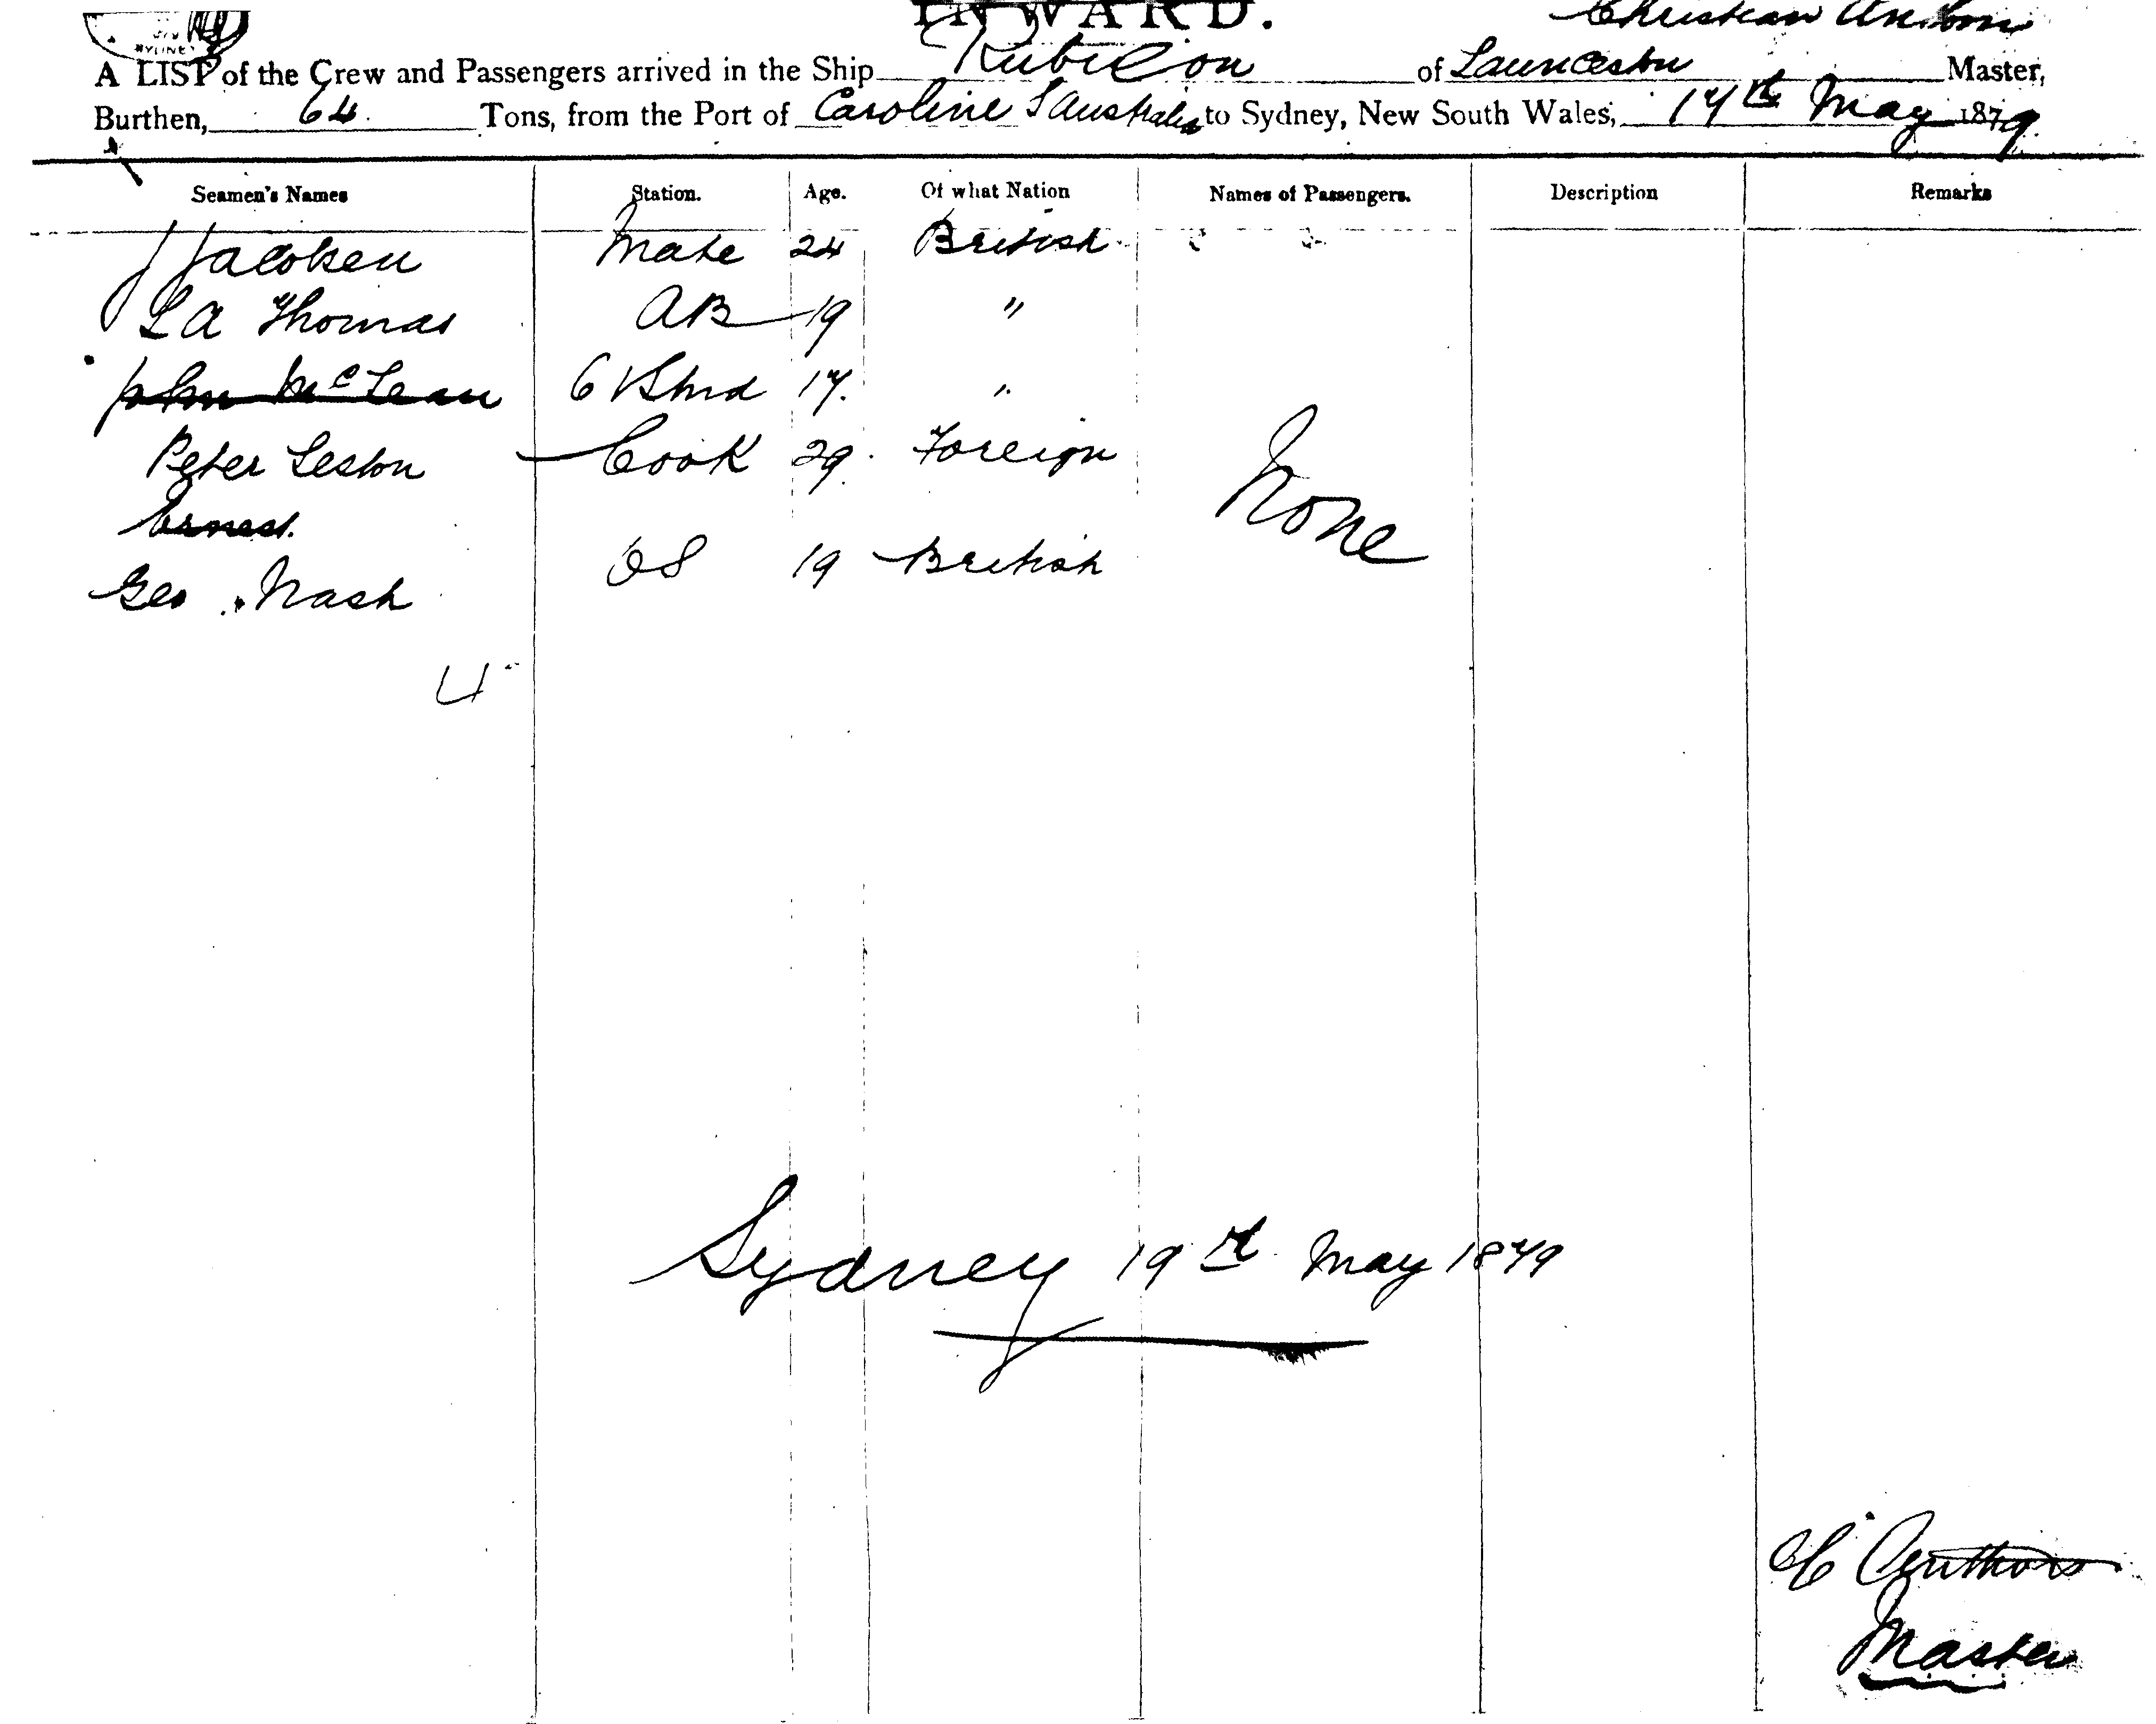 INWARD.
SYDNEY
Christian
A LIST of the Crew and Passengers arrived in the Ship Rubicon of Launceston Master,
Burthen, 64 Tons, from the Port of Caroline S Australia to Sydney, New South Wales, 17th May 1879.
Seamen's Names Station. Age. Of what Nation Names of Passengers. Description Remarks
J Jacobsen Mate 24 British
L A Thomas AB 19 "
John McLean 17. "
Peter Leston Cook 29. Foreign
None
Ernest.
Geo Nash OS 19 British
4
Sydney 19th May 1879
C
Master